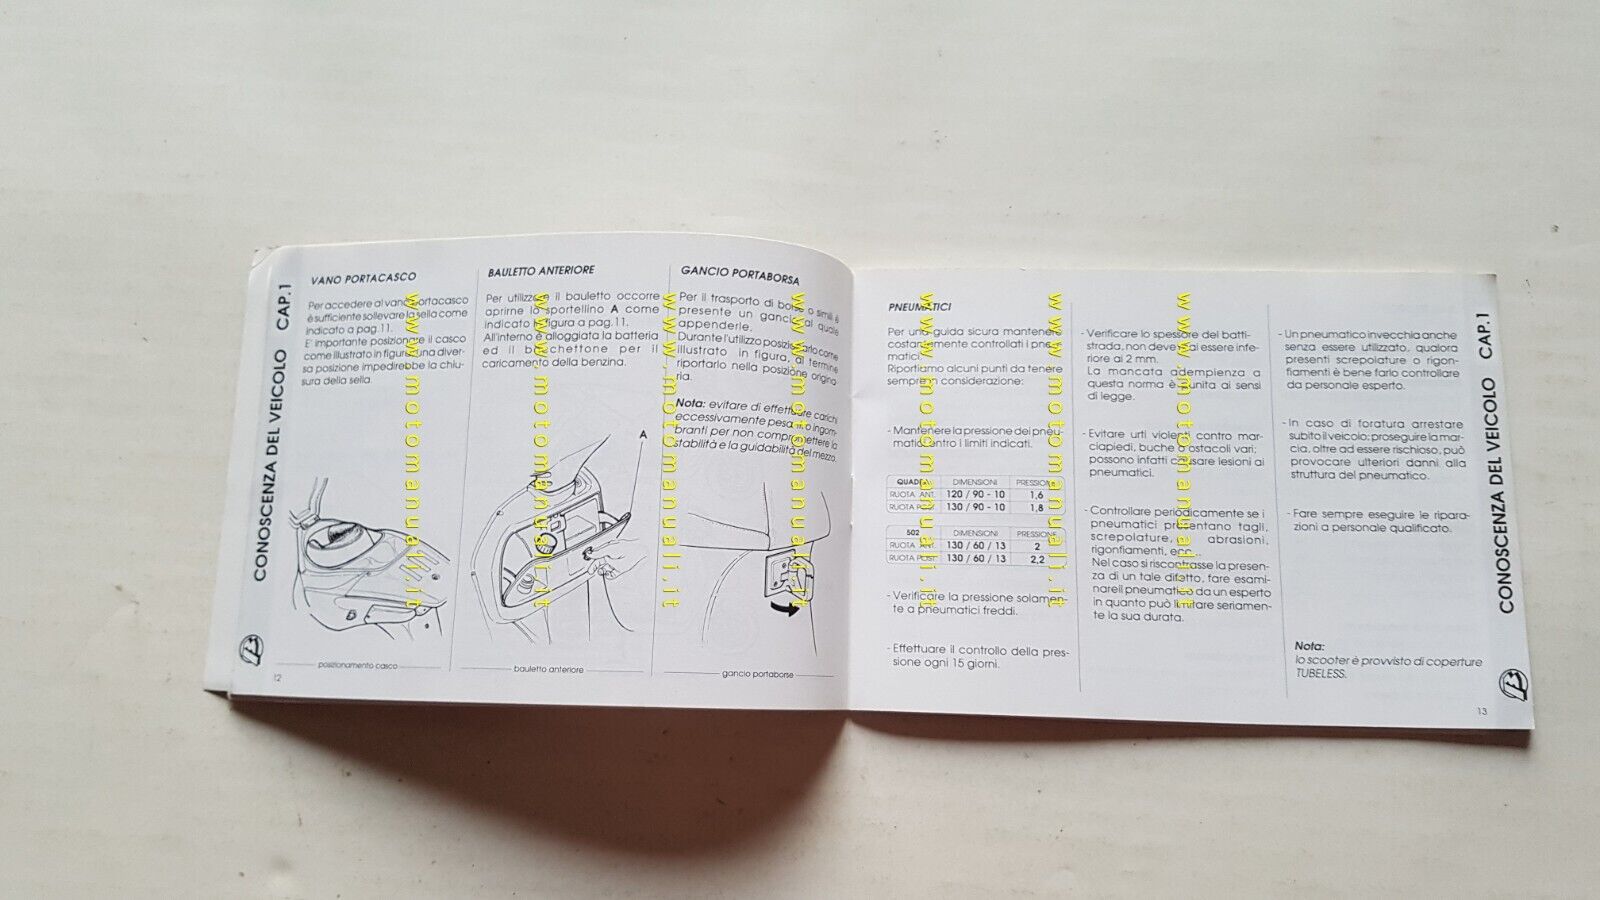 CONOSCENZA DEL VEICOLO CAP.1
VANO PORTACASCO
Per accedere al vano portacasco
è sufficiente sollevare la sella come
indicato a pag.11.
E' importante posizionare il casco
come illustrato in figura, una diver-
sa posizione impedirebbe la chiu-
sura della sella.
posizionamento casco
12
BAULETTO ANTERIORE
Per utilizzare il bauletto occorre
aprirne lo sportellino A come
indicato in figura a pag.11.
All'interno è alloggiata la batteria
ed il bocchettone per il
caricamento della benzina.
A
bauletto anteriore
GANCIO PORTABORSA
Per il trasporto di borse o simili, è
presente un gancio al quale
appenderle.
Durante l'utilizzo posizionarlo come
illustrato in figura, al termine
riportarlo nella posizione origina-
ria.
Nota: evitare di effettuare carichi
eccessivamente pesanti o ingom-
branti per non compromettere la
stabilità e la guidabilità del mezzo.
gancio portaborse
PNEUMATICI
Per una guida sicura mantenere
costantemente controllati i pneu-
matici.
Riportiamo alcuni punti da tenere
sempre in considerazione:
- Mantenere la pressione dei pneu-
matici entro i limiti indicati.
QUADRA DIMENSIONI PRESSIONE
RUOTA ANT. 120 / 90 - 10 1,6
RUOTA POST. 130 / 90 - 10 1,8
502 DIMENSIONI PRESSIONE
RUOTA ANT. 130 / 60 / 13 2
RUOTA POST. 130 / 60 / 13 2,2
- Verificare la pressione solamen-
te a pneumatici freddi.
- Effettuare il controllo della pres-
sione ogni 15 giorni.
- Verificare lo spessore del batti-
strada, non deve mai essere infe-
riore ai 2 mm.
La mancata adempienza a
questa norma è punita ai sensi
di legge.
- Evitare urti violenti contro mar-
ciapiedi, buche o ostacoli vari;
possono infatti causare lesioni ai
pneumatici.
- Controllare periodicamente se i
pneumatici presentano tagli,
screpolature, abrasioni,
rigonfiamenti, ecc...
Nel caso si riscontrasse la presen-
za di un tale difetto, fare esami-
nare il pneumatico da un esperto
in quanto può limitare seriamen-
te la sua durata.
- Un pneumatico invecchia anche
senza essere utilizzato, qualora
presenti screpolature o rigon-
fiamenti è bene farlo controllare
da personale esperto.
- In caso di foratura arrestare
subito il veicolo: proseguire la mar-
cia, oltre ad essere rischioso, può
provocare ulteriori danni alla
struttura del pneumatico.
- Fare sempre eseguire le ripara-
zioni a personale qualificato.
Nota:
lo scooter è provvisto di coperture
TUBELESS.
13
CONOSCENZA DEL VEICOLO CAP.1
www.motomanuali.it
www.motomanuali.it
www.motomanuali.it
www.motomanuali.it
www.motomanuali.it
www.motomanuali.it
www.motomanuali.it